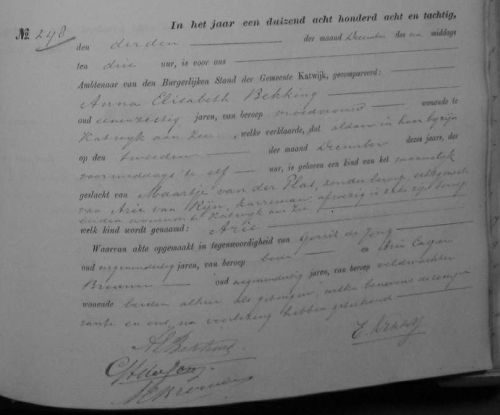 In het jaar een duizend acht honderd acht en tachtig,
No. 290
den derden der maand December des na middags
ten drie uur, is voor ons
Ambtenaar van den Burgerlijken Stand der Gemeente Katwijk, gecompareerd:
Anna Elisabeth Bekking
oud eenenzestig jaren, van beroep vroedvrouw wonende te
Katwijk aan Zee welke verklaarde, dat aldaar in haar bijzijn
op den tweeden der maand December dezes jaars, des
voormiddags te elf uur, is geboren een kind van het mannelijk
geslacht van Maartje van der Plas, zonder beroep echtgenoote
van Arie van Rijn,
beiden wonende te Katwijk aan Zee
welk kind wordt genaamd: Arie
Waarvan akte opgemaakt in tegenwoordigheid van Gerrit de Jong
oud jaren, van beroep bode en
Brouwer oud jaren, van beroep veldwachter
wonende beiden alhier als getuigen, welke benevens de compa-
rante en ons, na voorlezing hebben geteekend